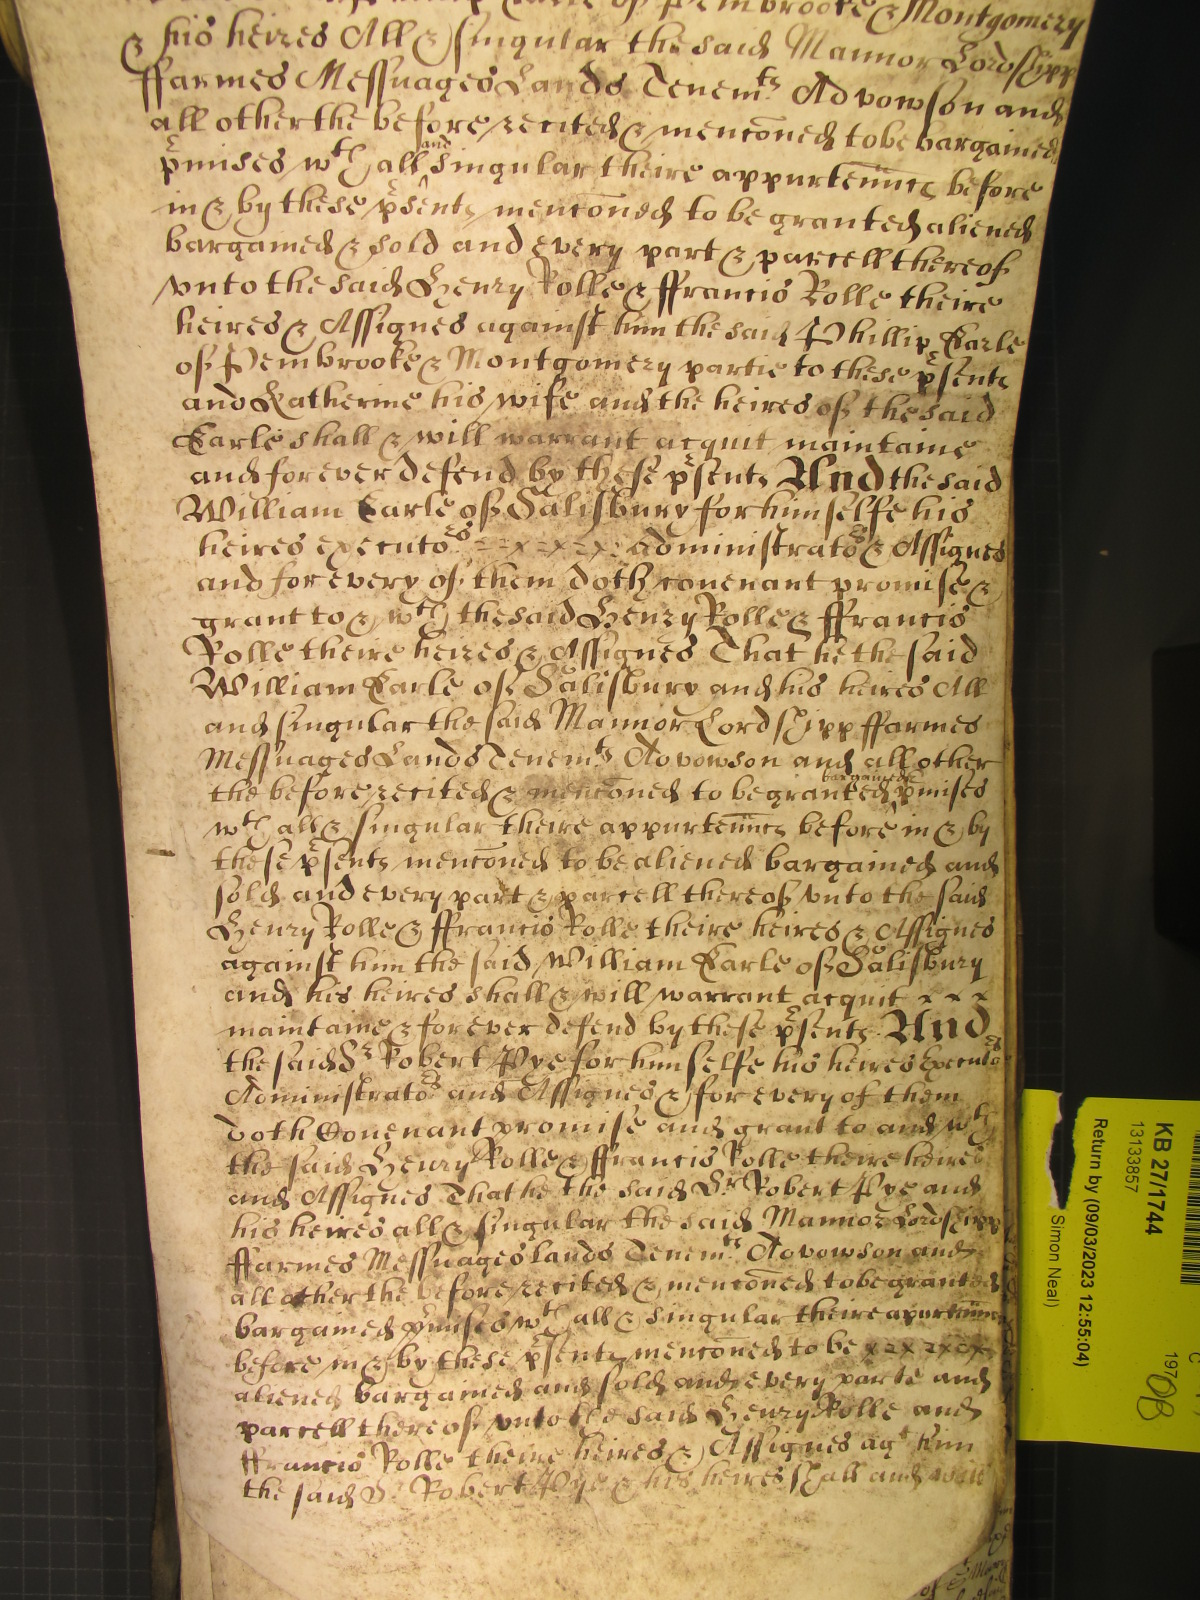 Earle of Pembrooke & Montgomery
& his heires All & singular the said Mannor Lordshipp
ffarmes Messuages Lands Tenemts Advowson and
all other the before recited & mencōned to be bargained
p̃mises wth all and singular theire appurteñncs before
in & by these p̃sents mencōned to be granted aliened
bargained & sold and every part & parcell thereof
vnto the said Henry Rolle & ffrancis Rolle theire
heires & Assignes against him the said Phillip Earle
of Pembrooke & Montgomery partie to these p̃sents
and Katherine his wife and the heires of the said
Earle shall & will warrant acquit maintaine
and forever defend by these p̃sents And the said
William Earle of Salisbury for himselfe his
heires executors administrators & Assignes
and for every of them doth covenant promise &
grant to & wth the said Henry Rolle & ffrancis
Rolle theire heires & Assignes That he the said
William Earle of Salisbury and his heires All
and singular the said Mannor Lordshipp ffarmes
Messuages Lands Tenemts Advowson and all other
the before recited & mencōned to be granted bargained p̃mises
wth all & singular theire appurteñncs before in & by
these p̃sents mencōned to be aliened bargained and
sold and every part & parcell thereof vnto the said
Henry Rolle & ffrancis Rolle theire heires & Assignes
against him the said William Earle of Salisbury
and his heires shall & will warrant acquit x x x
maintaine & forever defend by these p̃sents. And
the said Sr Robert Pye for himselfe his heires Executors
Administrators and Assignes & for every of them
doth Covenant promise and grant to and wth
the said Henry Rolle & ffrancis Rolle theire heires
and Assignes That he the said Sr Robert Pye and
his heires all & singular the said Mannor Lordshipp
ffarmes Messuages lands Tenemts Advowson and
all other the before recited & mencōned to be granted
bargained p̃mises wth all & singular theire
before in & by these p̃sents mencōned to be
aliened bargained and sold and every parte and
parcell thereof vnto the said Henry Rolle and
ffrancis Rolle theire heires & Assignes agt him
the said Sr Robert Pye & his heires shall and will
KB 27/1744
13133857
Return by (09/03/2023 12:55:04)
Simon Neal)